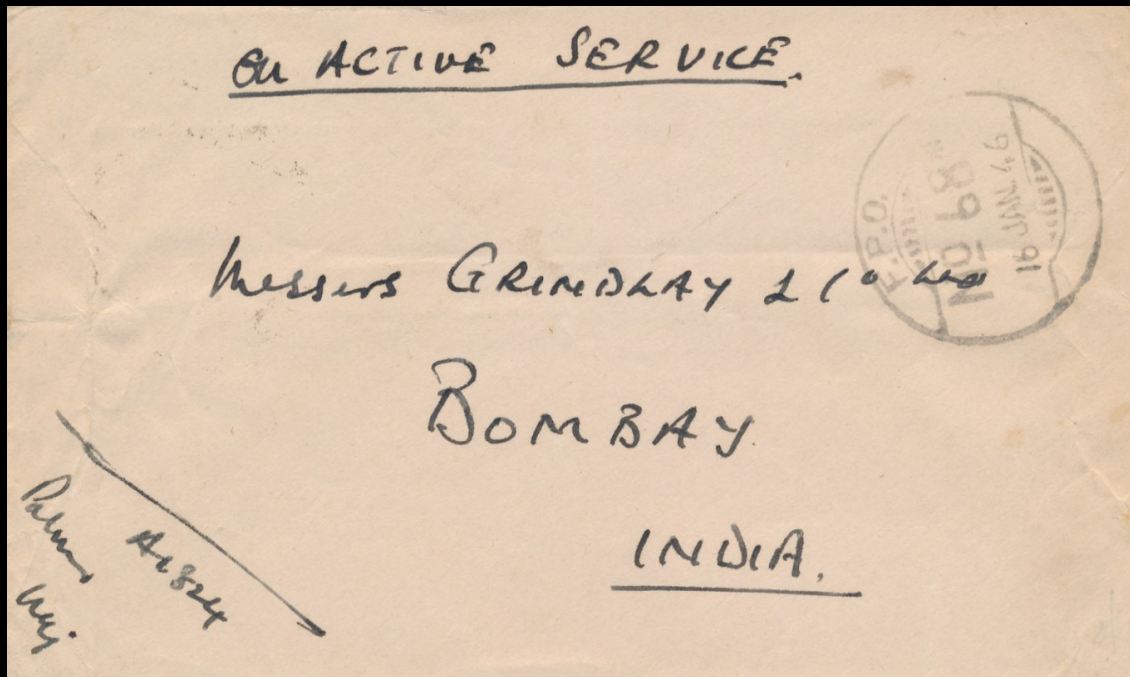 On ACTIVE SERVICE.
F.P.O.
No 68
16 JAN. 46
Messers GRINDLAY & Co Ltd
BOMBAY
INDIA.
Maj.